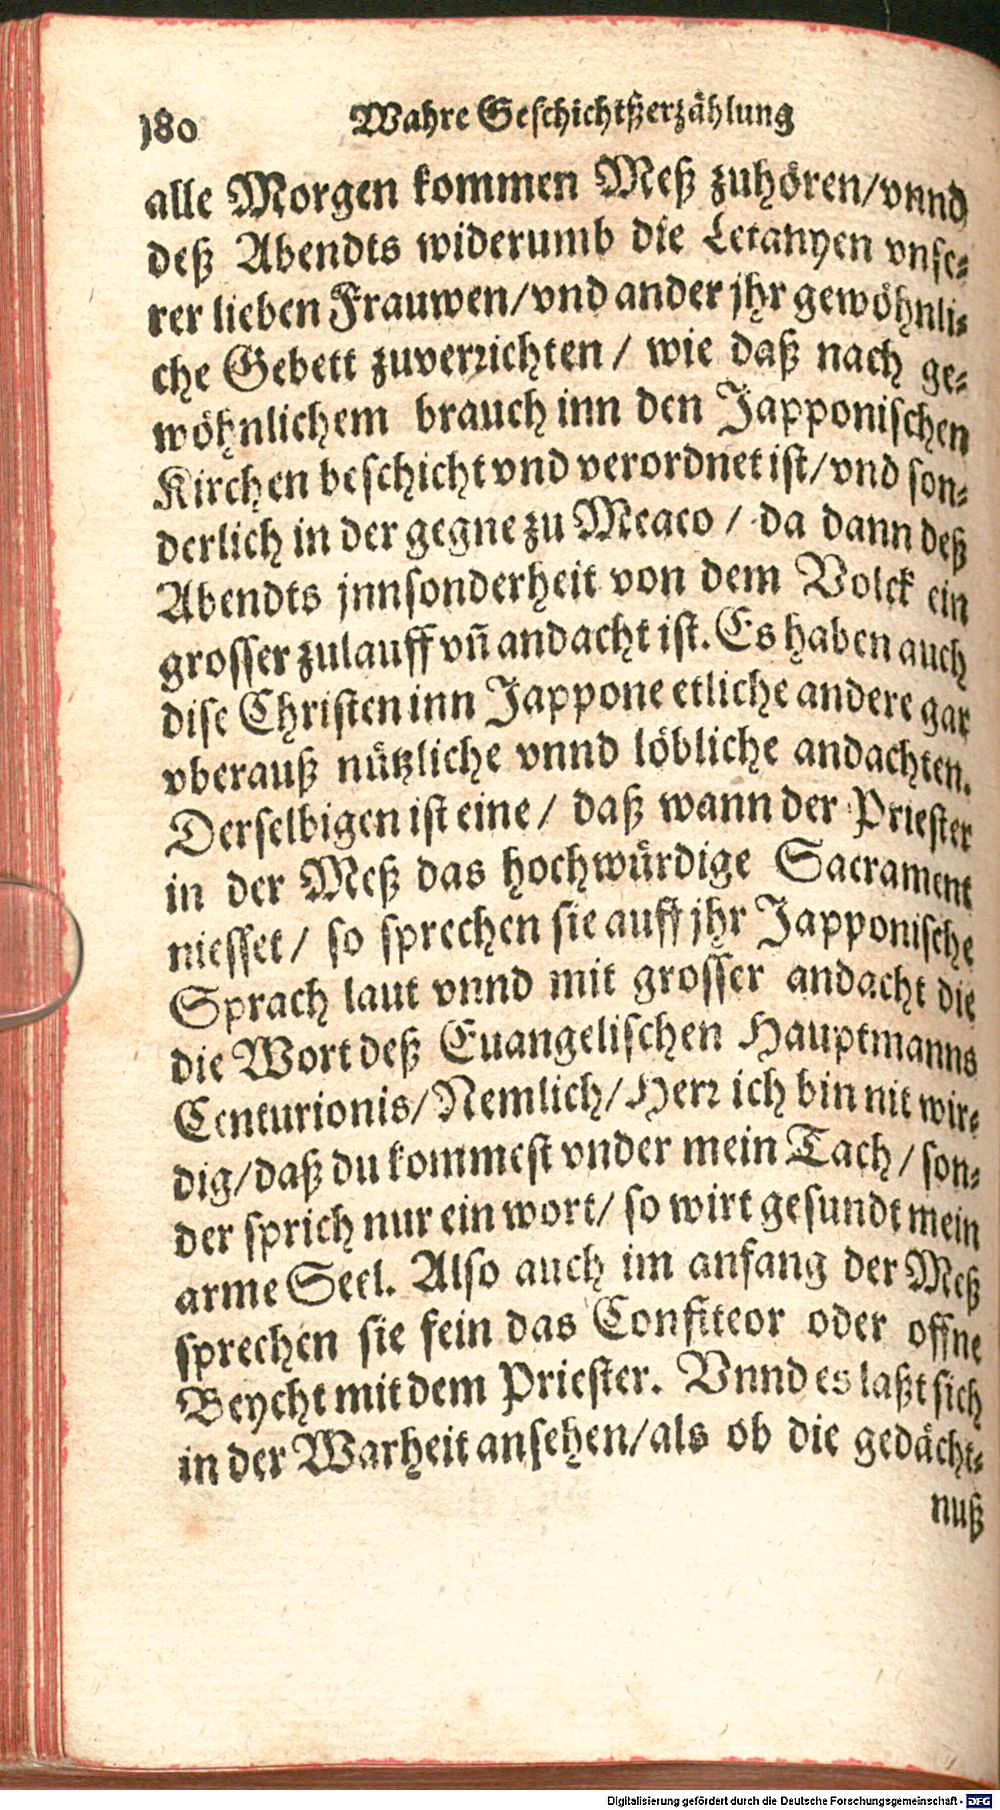 180 Wahre Geschichtßerzählung
alle Morgen kommen Meß zuhören/vnnd
deß Abendts widerumb die Letanyen vnse-
rer lieben Frauwen/vnd ander jhr gewöhnli-
che Gebett zuverrichten/ wie daß nach ge-
wöhnlichem brauch inn den Japponischen
Kirchen beschicht vnd verordnet ist/vnd son-
derlich in der gegne zu Meaco / da dann deß
Abendts jnnsonderheit von dem Volck ein
grosser zulauff vñ andacht ist. Es haben auch
dise Christen inn Jappone etliche andere gar
vberauß nützliche vnnd löbliche andachten.
Derselbigen ist eine/ daß wann der Priester
in der Meß das hochwürdige Sacrament
niesset/ so sprechen sie auff jhr Japponische
Sprach laut vnnd mit grosser andacht die
die Wort deß Euangelischen Hauptmanns
Centurionis/Nemlich/Herr ich bin nit wir-
dig/daß du kommest vnder mein Tach/son-
der sprich nur ein wort/ so wirt gesundt mein
arme Seel. Also auch im anfang der Meß
sprechen sie fein das Confiteor oder offne
Beycht mit dem Priester. Vnnd es laßt sich
in der Warheit ansehen/als ob die gedächt-
nuß
Digitalisierung gefördert durch die Deutsche Forschungsgemeinschaft - DFG